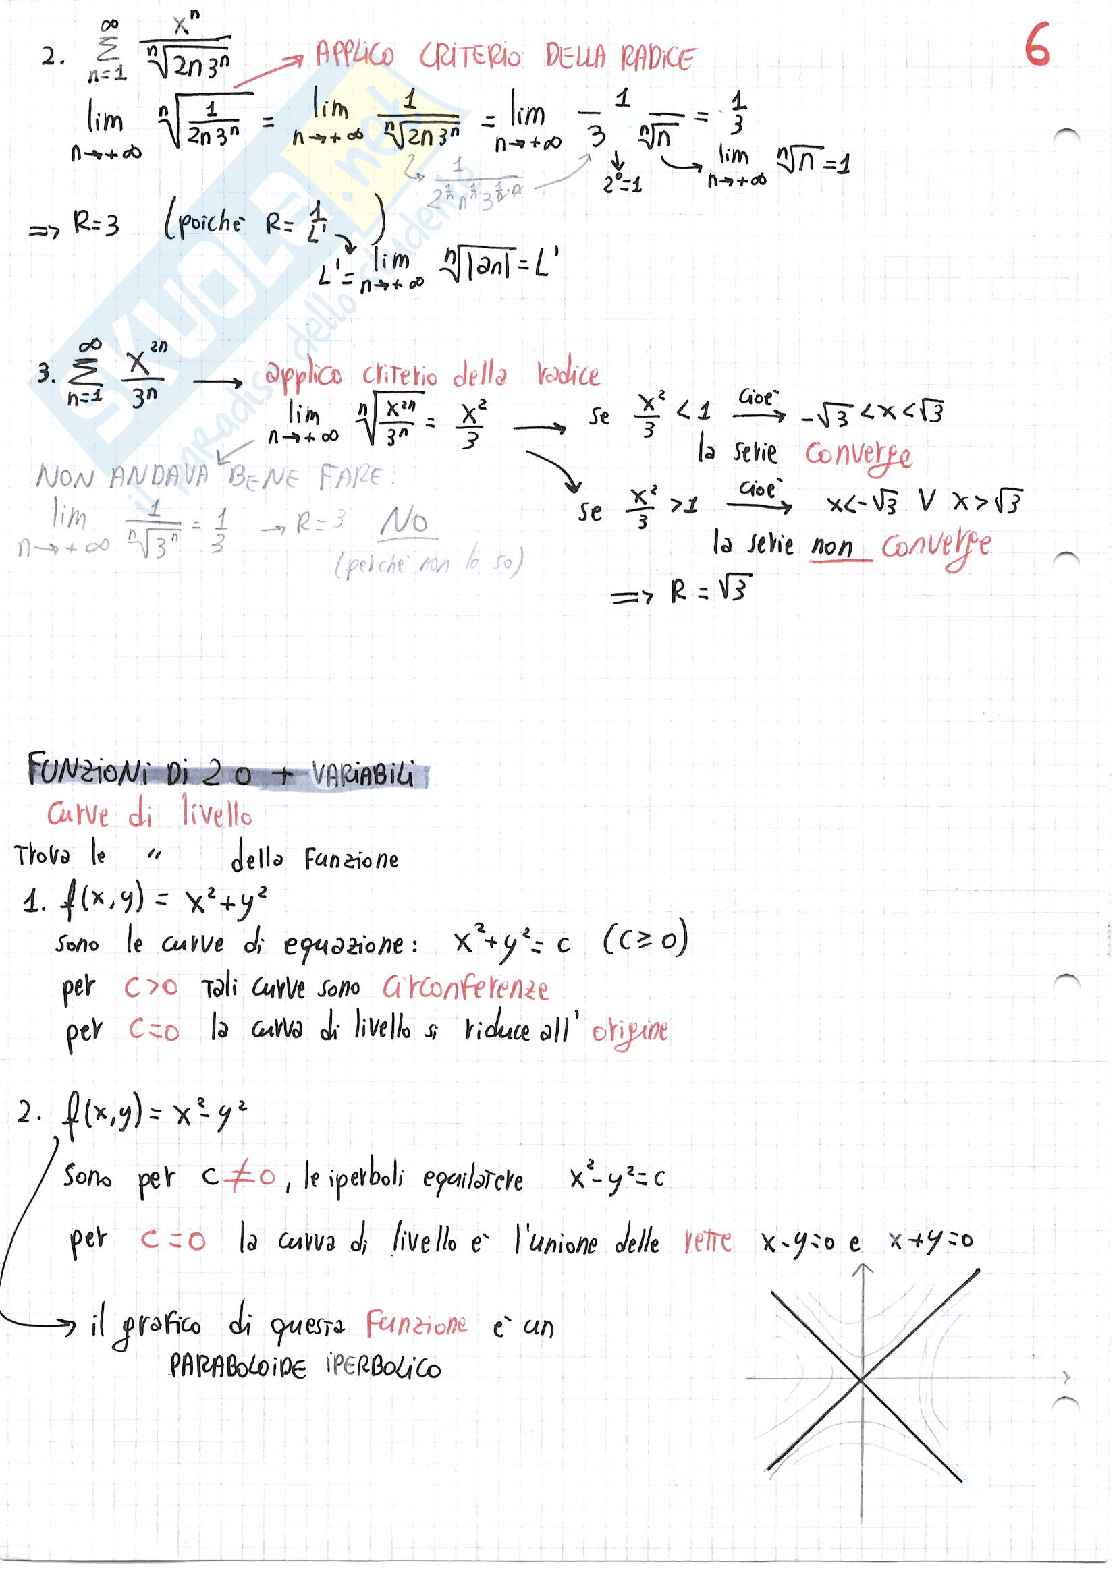 6
2. ∞ Σ n=1 xⁿ / ⁿ√2n3ⁿ → APPLICO CRITERIO DELLA RADICE
lim n→+∞ ⁿ√(1/2n3ⁿ) = lim n→+∞ 1/ⁿ√2n3ⁿ = lim n→+∞ 1/3 ⁿ√n = 1/3
2⁰=1 lim n→+∞ ⁿ√n = 1
⇒ R=3 (poichè R= 1/L')
L' = lim n→+∞ ⁿ√|an| = L'
3. ∞ Σ n=1 x²ⁿ/3ⁿ → applico criterio della radice
lim n→+∞ ⁿ√(x²ⁿ/3ⁿ) = x²/3 → se x²/3 < 1 cioè → -√3 < x < √3
la serie converge
NON ANDAVA BENE FARE:
se x²/3 > 1 cioè → x<-√3 V x>√3
lim n→+∞ 1/ⁿ√3ⁿ = 1/3 → R=3 NO
la serie non converge
(perché non lo so)
⇒ R = √3
FUNZIONI DI 2 O + VARIABILI
Curve di livello
Trova le " della funzione
1. f(x,y) = x²+y²
sono le curve di equazione: x²+y²= c (c≥0)
per c>0 tali curve sono circonferenze
per c=0 la curva di livello si riduce all' origine
2. f(x,y) = x²-y²
sono per c≠0, le iperboli equilatere x²-y²=c
per c=0 la curva di livello è l'unione delle rette x-y=0 e x+y=0
→ il grafico di questa funzione è un
PARABOLOIDE IPERBOLICO